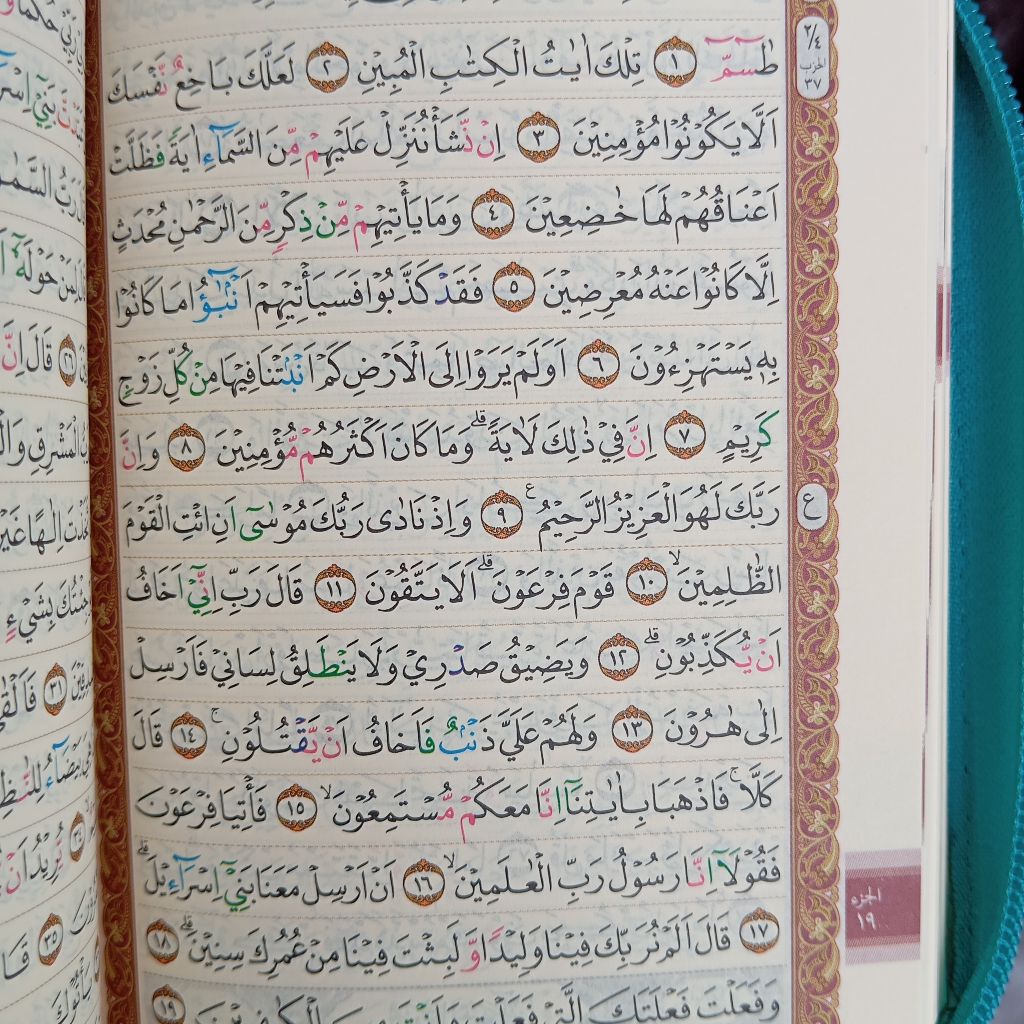 طٰسۤمّۤ ۝١ تِلْكَ اٰيٰتُ الْكِتٰبِ الْمُبِيْنِ ۝٢ لَعَلَّكَ بَاخِعٌ نَّفْسَكَ
اَلَّا يَكُوْنُوْا مُؤْمِنِيْنَ ۝٣ اِنْ نَّشَأْ نُنَزِّلْ عَلَيْهِمْ مِّنَ السَّمَاۤءِ اٰيَةً فَظَلَّتْ
اَعْنَاقُهُمْ لَهَا خٰضِعِيْنَ ۝٤ وَمَا يَأْتِيْهِمْ مِّنْ ذِكْرٍ مِّنَ الرَّحْمٰنِ مُحْدَثٍ
اِلَّا كَانُوْا عَنْهُ مُعْرِضِيْنَ ۝٥ فَقَدْ كَذَّبُوْا فَسَيَأْتِيْهِمْ اَنْۢبـٰۤؤُا مَا كَانُوْا
بِهٖ يَسْتَهْزِءُوْنَ ۝٦ اَوَلَمْ يَرَوْا اِلَى الْاَرْضِ كَمْ اَنْۢبَتْنَا فِيْهَا مِنْ كُلِّ زَوْجٍ
كَرِيْمٍ ۝٧ اِنَّ فِيْ ذٰلِكَ لَاٰيَةًۗ وَمَا كَانَ اَكْثَرُهُمْ مُّؤْمِنِيْنَ ۝٨ وَاِنَّ
رَبَّكَ لَهُوَ الْعَزِيْزُ الرَّحِيْمُ ࣖ ۝٩ وَاِذْ نَادٰى رَبُّكَ مُوْسٰٓى اَنِ ائْتِ الْقَوْمَ
الظّٰلِمِيْنَۙ ۝١٠ قَوْمَ فِرْعَوْنَۗ اَلَا يَتَّقُوْنَ ۝١١ قَالَ رَبِّ اِنِّيْٓ اَخَافُ
اَنْ يُّكَذِّبُوْنِۗ ۝١٢ وَيَضِيْقُ صَدْرِيْ وَلَا يَنْطَلِقُ لِسَانِيْ فَاَرْسِلْ
اِلٰى هٰرُوْنَ ۝١٣ وَلَهُمْ عَلَيَّ ذَنْۢبٌ فَاَخَافُ اَنْ يَّقْتُلُوْنِۚ ۝١٤ قَالَ
كَلَّاۚ فَاذْهَبَا بِاٰيٰتِنَآ اِنَّا مَعَكُمْ مُّسْتَمِعُوْنَۙ ۝١٥ فَأْتِيَا فِرْعَوْنَ
فَقُوْلَآ اِنَّا رَسُوْلُ رَبِّ الْعٰلَمِيْنَۙ ۝١٦ اَنْ اَرْسِلْ مَعَنَا بَنِيْٓ اِسْرَاۤءِيْلَۗ
۝١٧ قَالَ اَلَمْ نُرَبِّكَ فِيْنَا وَلِيْدًا وَّلَبِثْتَ فِيْنَا مِنْ عُمُرِكَ سِنِيْنَۗ ۝١٨
وَفَعَلْتَ فَعْلَتَكَ الَّتِيْ فَعَلْتَ وَاَنْتَ مِنَ الْكٰفِرِيْنَ ۝١٩
٢/٤
الحزب
٣٧
ع
الجزء
١٩